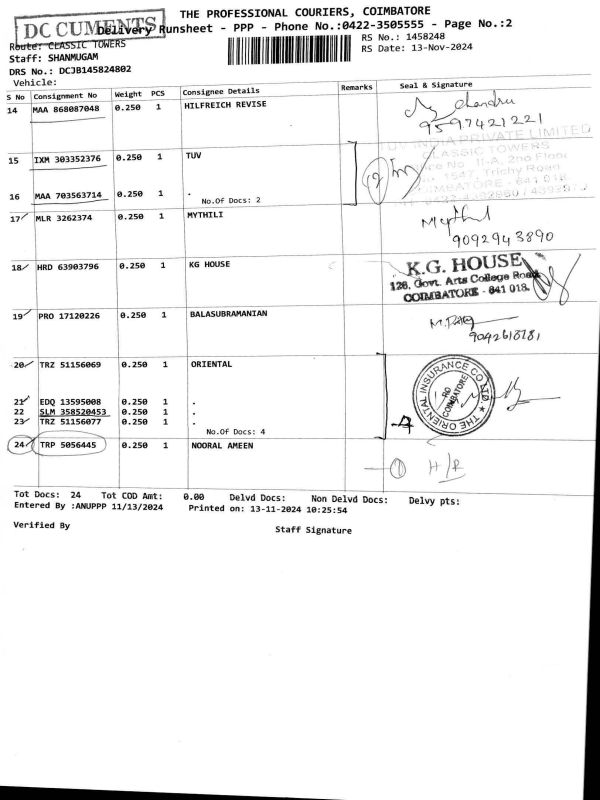 THE PROFESSIONAL COURIERS, COIMBATORE
DC CUMENTS
Delivery Runsheet - PPP - Phone No.:0422-3505555 - Page No.:2
Route: CLASSIC TOWERS
RS No.: 1458248
Staff: SHANMUGAM
RS Date: 13-Nov-2024
DRS No.: DCJB145824802
Vehicle:
S No Consignment No Weight PCS Consignee Details Remarks Seal & Signature
14 MAA 868087048 0.250 1 HILFREICH REVISE
chandru
9597421221
15 IXM 303352376 0.250 1 TUV
TUV INDIA PRIVATE LIMITED
CLASSIC TOWERS
No. II-A, 2nd Floor
1547, Trichy Road
COIMBATORE - 641 018
16 MAA 703563714 0.250 1 .
No.Of Docs: 2
17 MLR 3262374 0.250 1 MYTHILI
9092943890
18 HRD 63903796 0.250 1 KG HOUSE
K.G. HOUSE
126, Govt. Arts College Road
COIMBATORE - 641 018.
19 PRO 17120226 0.250 1 BALASUBRAMANIAN
9042618181
20 TRZ 51156069 0.250 1 ORIENTAL
THE ORIENTAL INSURANCE CO LTD.
RO
COIMBATORE
21 EDQ 13595008 0.250 1 .
22 SLM 358520453 0.250 1 .
23 TRZ 51156077 0.250 1 .
No.Of Docs: 4
24 TRP 5056445 0.250 1 NOORAL AMEEN
1 H/R
Tot Docs: 24 Tot COD Amt: 0.00 Delvd Docs: Non Delvd Docs: Delvy pts:
Entered By :ANUPPP 11/13/2024 Printed on: 13-11-2024 10:25:54
Verified By
Staff Signature